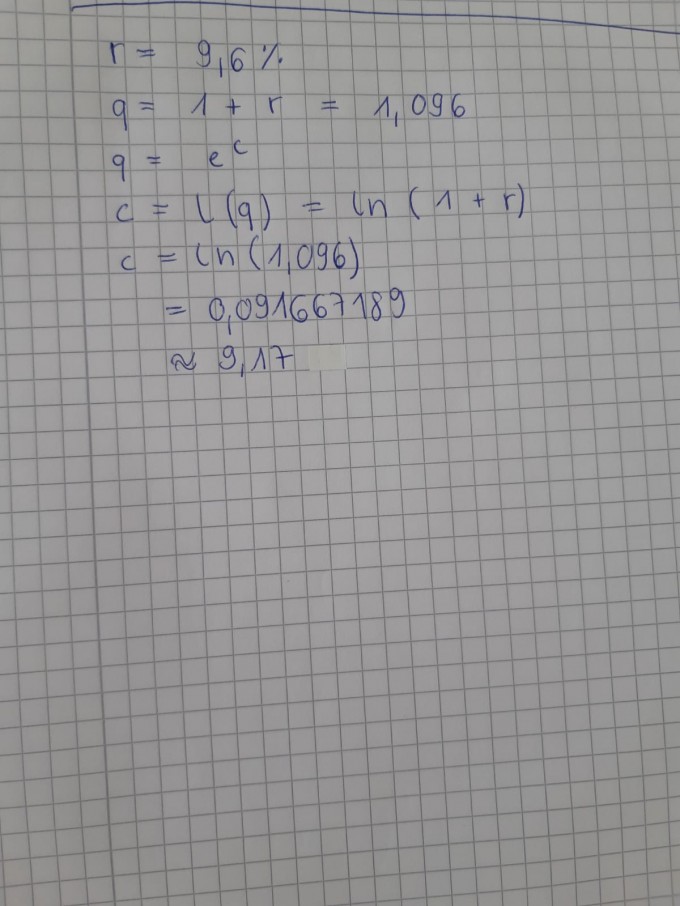 r = 9,6 %
q = 1 + r = 1,096
q = e^c
c = l(q) = ln (1 + r)
c = ln (1,096)
= 0,091667189
≈ 9,17